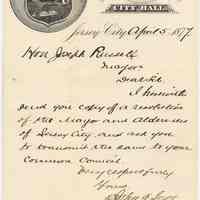 CITY HALL.
Jersey City, April 5, 1877.
Hon Joseph Russell
Mayor
Dear Sir
I herewith
send you copy of a resolution
of the Mayor and Aldermen
of Jersey City, and ask you
to transmit the same to your
Common Council.
Very respectfully
Yours
John